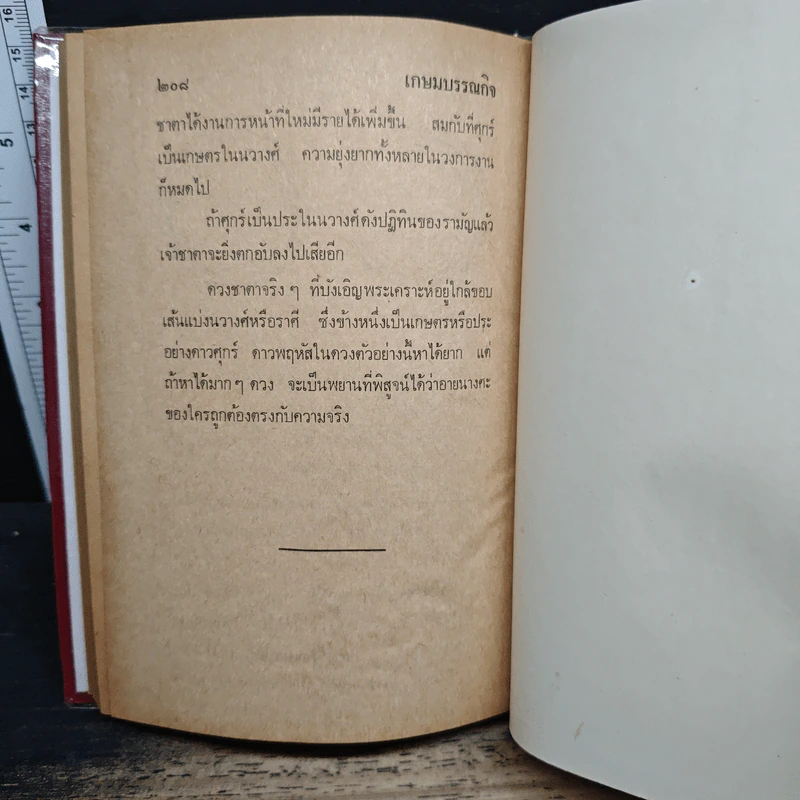 ๒๐๘ เกษมบรรณกิจ
ชาตาได้งานการหน้าที่ใหม่มีรายได้เพิ่มขึ้น สมกับที่ศุกร์
เป็นเกษตรในนวางศ์ ความยุ่งยากทั้งหลายในวงการงาน
ก็หมดไป
ถ้าศุกร์เป็นประในนวางศ์ดังปฏิทินของรามัญแล้ว
เจ้าชาตาจะยิ่งตกอับลงไปเสียอีก
ดวงชาตาจริง ๆ ที่บังเอิญพระเคราะห์อยู่ใกล้ขอบ
เส้นแบ่งนวางศ์หรือราศี ซึ่งข้างหนึ่งเป็นเกษตรหรือประ
อย่างดาวศุกร์ ดาวพฤหัสในดวงตัวอย่างนี้หาได้ยาก แต่
ถ้าหาได้มาก ๆ ดวง จะเป็นพยานที่พิสูจน์ได้ว่าอายนางศะ
ของใครถูกต้องตรงกับความจริง
16
15
14
13
12
11
5
4